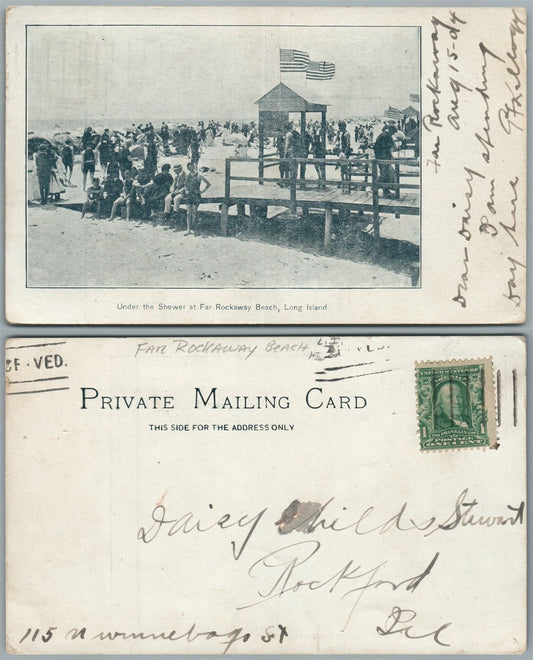 Far Rockaway
Aug 15-04
Dear Daisy
I am spending
day here
Under the Shower at Far Rockaway Beach, Long Island
VED.
Far Rockaway Beach
Private Mailing Card
THIS SIDE FOR THE ADDRESS ONLY
UNITED STATES OF
FRANKLIN
POSTAGE
ONE CENT
Daisy Childs Stewart
Rockford
115 N winnebago St
Ill